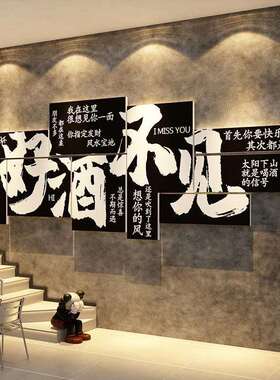 我在这里
很想见你一面
都在这来
你指定发财
风水宝地
I MISS YOU
首先你要快乐
其次都
好酒不见
HI
总是惊喜
不期而遇
还是吹到了这里
想你的风
太阳下山
就是喝酒
的信号